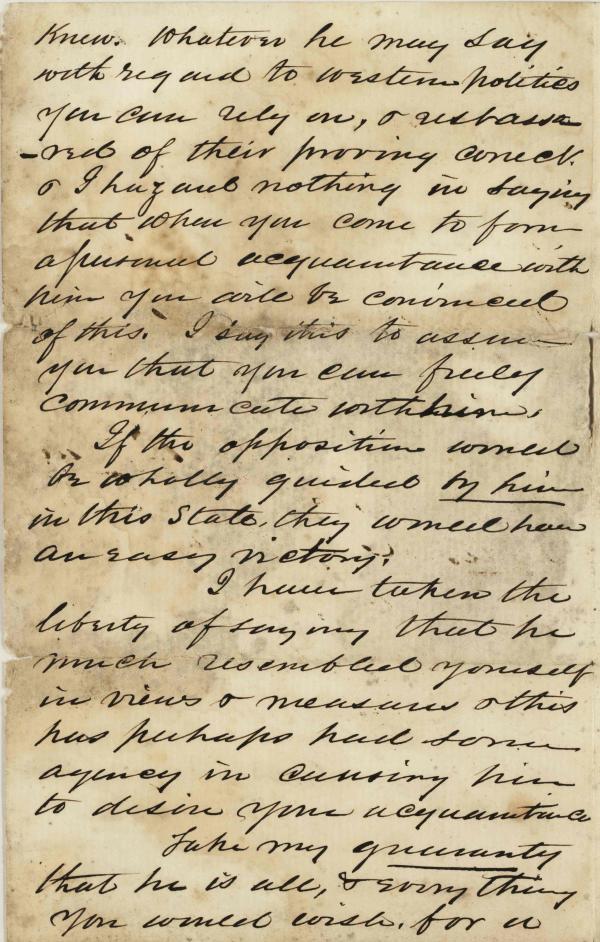 Knew. Whatever he may say
with regard to western politics
you can rely on, & rest assu
-red of their proving correct.
& I hazard nothing in saying
that when you come to form
a personal acquaintance with
him you will be convinced
of this. I say this to assure
you that you can freely
communicate with him.
If the opposition would
be wholly guided by him
in this State, they would have
an easy victory.
I have taken the
liberty of saying that he
much resembled yourself
in views & measures & this
has perhaps had some
agency in causing him
to desire your acquaintance
Take my guaranty
that he is all, & everything
you would wish. for a